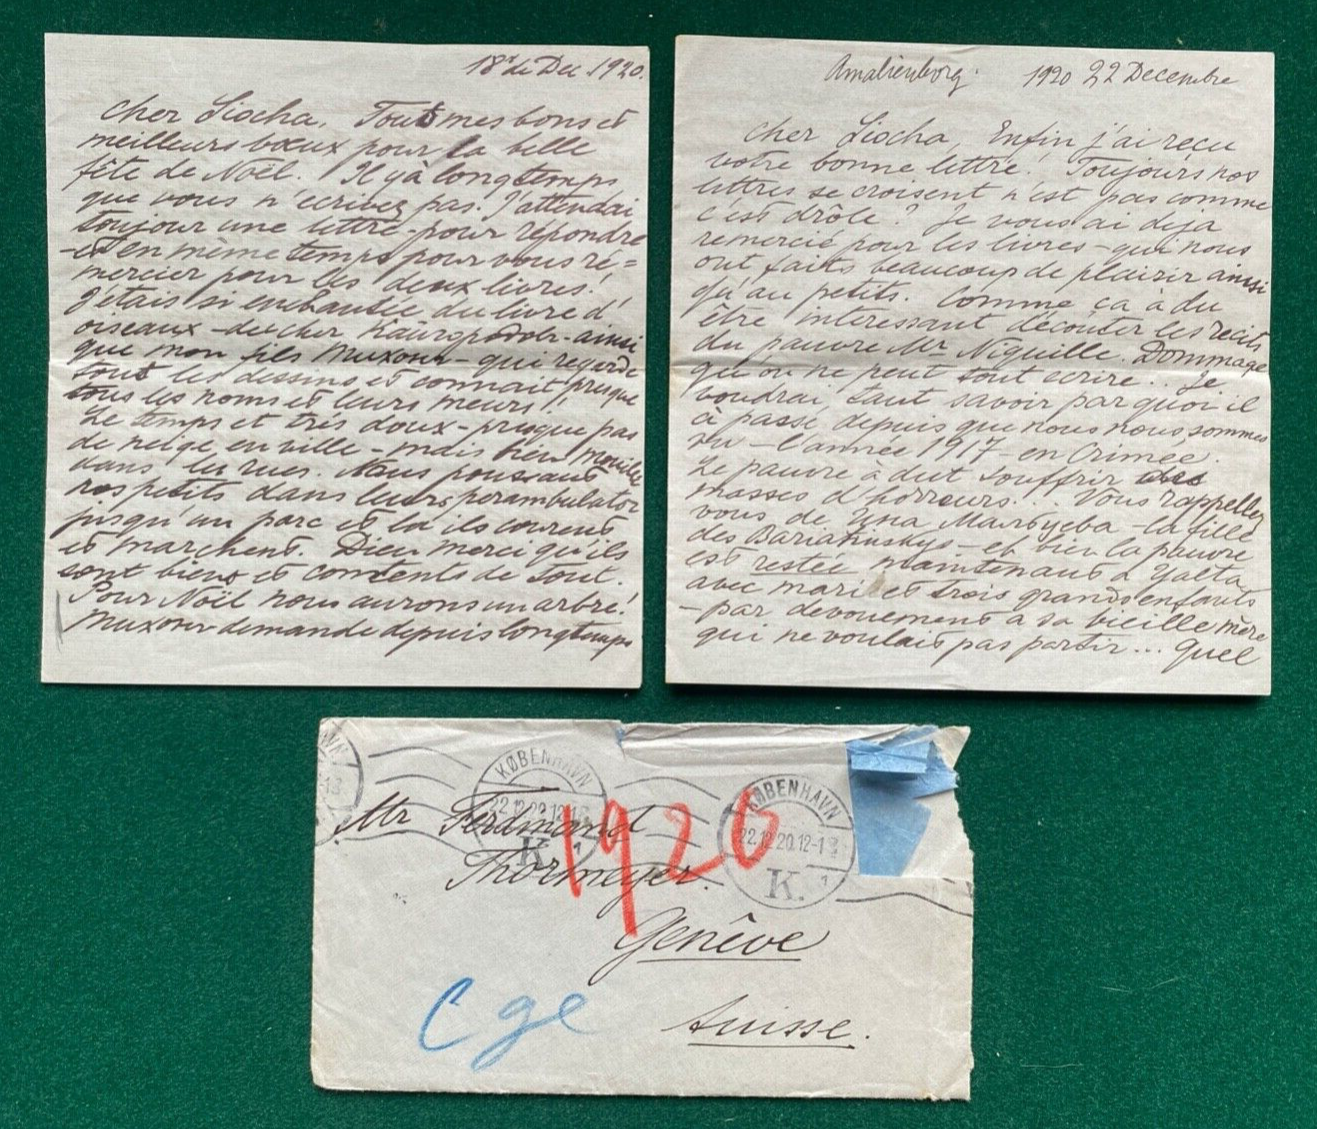 18 de Dec. 1920.
Cher Siocha. Touts mes bons et
meilleurs vœux pour la belle
fête de Noël. Il y à longtemps
que vous n'ecrivez pas. J'attendai
toujour une lettre - pour répondre
- et en même temps pour vous re=
mercier pour les deux livres!
J'étais si enchantée du livre d'
oiseaux - du cher - ainsi
que mon fils - qui regarde
tout les dessins et connait presque
tous les noms et leurs meurs!
Le temps et très doux - presque pas
de neige en ville - mais bien mouillé
dans les rues. Nous poussons
nos petits dans leurs perambulator
jusqu'au parc et là ils courent
et marchent. Dieu merci qu'ils
sont biens et contents de tout.
Pour Noël nous aurons un arbre!
demande depuis longtemps
Amalienborg. 1920 22 Decembre
Cher Siocha, Enfin j'ai reçu
votre bonne lettre! Toujours nos
lettres se croisent n'est pas comme
c'est drôle? Je vous ai deja
remercié pour les livres - qui nous
ont faits beaucoup de plaizir ainsi
qu'au petits. Comme ça a du
être interessant d'écouter les recits
du pauvre Mr Niquille. Dommage
qu'on ne peut tout ecrire... Je
voudrai tant savoir par quoi il
à passé depuis que nous nous sommes
vu - l'année 1917 - en Crimée.
Le pauvre à dut souffrir des
masses d'horreurs... Vous rappellez
vous de - la fille
des - et bien la pauvre
est restée maintenant à Yalta
avec mari et trois grands enfants
- par devouement à sa vieille mère
qui ne voulait pas partir... Quel
KØBENHAVN
22.12.20.12-1
K.
1
KØBENHAVN
22.12.20.12-1
K.
1
Mr Ferdinand
Thormeyer.
Genêve
Suisse.
1920
Cge